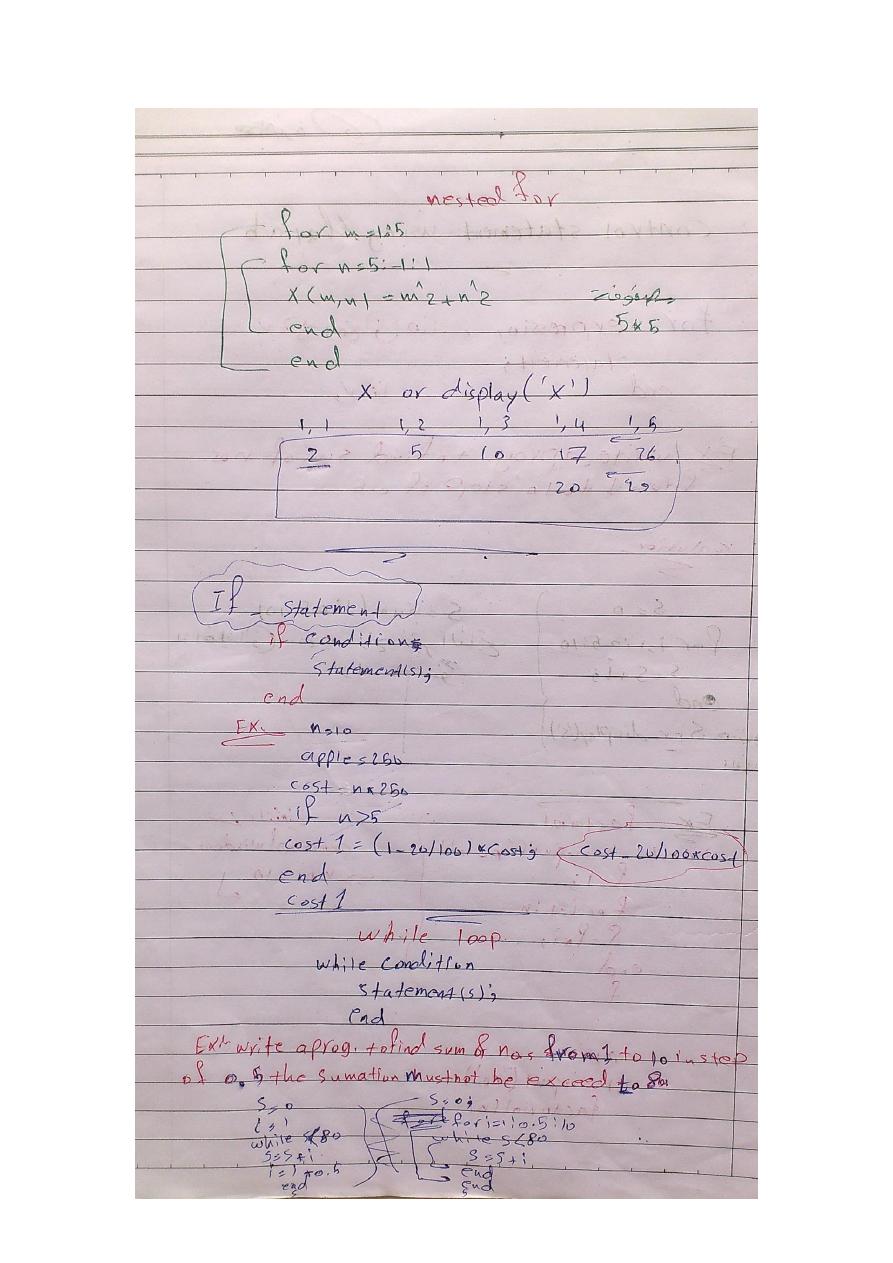 nested for
for m=1:5
for n=5:-1:1
X(m,n) = m^2+n^2
مصفوفة
end
5*5
end
X or display('X')
1,1 1,2 1,3 1,4 1,5
2 5 10 17 26
20 29
If - statement
if condition
statement(s);
end
EX. n=10
apple=250
cost=n*250
if n>5
cost 1 = (1-20/100)*cost; cost-20/100*cost
end
cost 1
while loop
while condition
statement(s);
end
Ex: write a prog. to find sum of nos from 1 to 10 in step
of 0.5 the sumation must not be exceed to 80
S=0
i=1
while s<80
s=s+i
i=i+0.5
end
S=0;
for i=1:0.5:10
while s<80
s=s+i
end
end